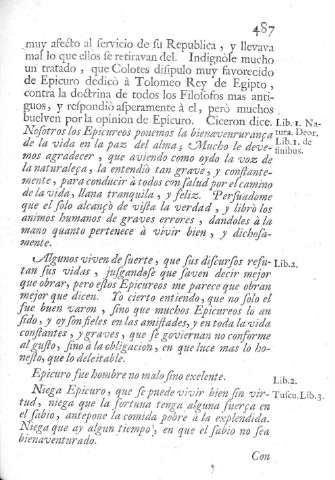 487
muy afecto al servicio de su Republica, y llevava
mal lo que ellos se retiravan del. Indignóse mucho
un tratado, que Colotes disipulo muy favorecido
de Epicuro dedicò à Tolomeo Rey de Egipto,
contra la doctrina de todos los Filosofos mas anti-
guos, y respondiò asperamente à el, però muchos
buelven por la opinion de Epicuro. Ciceron dice. Lib. 1. Na-
Nosotros los Epicureos ponemos la bienavenruranҫa tura. Deor.
de la vida en la paz del alma; Mucho le deve- Lib. 1. de
mos agradecer, que aviendo como oydo la voz de finibus.
la naturaleça, la entendiò tan grave, y constante-
mente, para conducir à todos con salud por el camino
de la vida, llana tranquila, y feliz. Persuadome
que el solo alcançò de vista la verdad, y librò los
animos humanos de graves errores, dandoles à la
mano quanto pertenece à vivir bien, y dichosa-
mente.
Algunos viven de suerte, que sus discursos refu- Lib. 2.
tan sus vidas, jusgandose que saven decir mejor
que obrar, pero estos Epicureos me parece que obran
mejor que dicen. Yo cierto entiendo, que no solo el
fue buen varon, sino que muchos Epicureos lo an
sido, y oy son fieles en las amistades, y en toda la vida
constantes, y graves, que se goviernan no conforme
al gusto, sino à la obligacion, en que luce mas lo ho-
nesto, que lo deleitable.
Epicuro fue hombre no malo sino exelente. Lib. 2.
Niega Epicuro, que se puede vivir bien sin vir- Tuscu. Lib. 3.
tud, niega que la fortuna tenga alguna fuerça en
el sabio, antepone la comida pobre à la explendida.
Niega que ay algun tiempo, en que el sabio no sea
bienaventurado.
Con